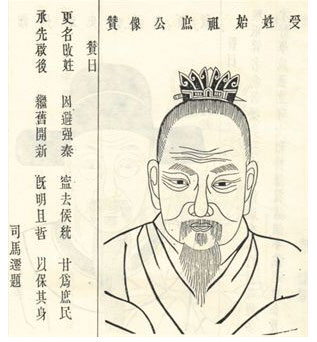 受姓始祖庶公像贊
贊曰
更名改姓 因避强秦 去侯統 甘爲庶民
承先啟後 繼舊開新 既明且哲 以保其身
司馬遷題